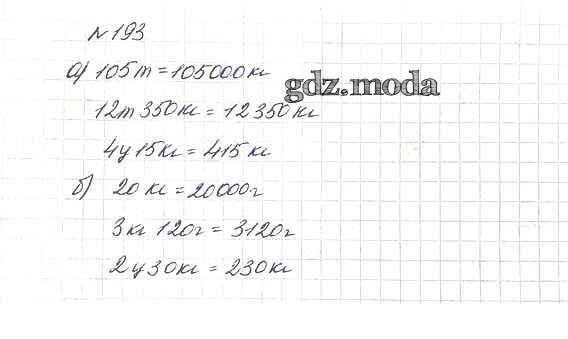 №193
а) 105т = 105000кг
gdz.moda
12т 350кг = 12350кг
4ц 15кг = 415кг
б) 20 кг = 20000г
3кг 120г = 3120г
2ц 30кг = 230кг